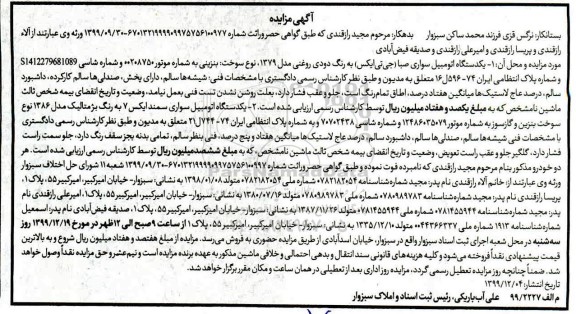 آگهی مزایده
بستانکار: نرگس قزی فرزند محمد ساکن سبزوار بدهکار: مرحوم مجید رازقندی که طبق گواهی حصر وراثت شماره ورثه وی عبارتند از آلاله
رازقندی و پریسا رازقندی و امیرعلی رازقندی و صدیقه فیض‌آبادی
مورد مزایده و محل آن: ۱- یکدستگاه اتومبیل سواری صبا (جی‌تی‌ایکس) به رنگ دودی روغنی مدل ۱۳۷۹، نوع سوخت: بنزینی به شماره موتور ۰۰۲۰۸۷۵۰ و شماره شاسی S1412279681089
و شماره پلاک انتظامی ایران ۷۴-۵۹۶ل۱۶ متعلق به مدیون و طبق نظر کارشناس رسمی دادگستری با مشخصات فنی: شیشه‌ها سالم، دارای پخش، صندلی‌ها سالم کارکرده، داشبورد
سالم، درصد عاج لاستیک‌ها میانگین هفتاد درصد، اطاق تمام رنگ است، جلو و عقب فشار دارد، بعلت روشن نشدن تست فنی بعمل نیامد، وضعیت و تاریخ انقضای بیمه شخص ثالث
ماشین نامشخص که به مبلغ یکصد و هفتاد میلیون ریال توسط کارشناس رسمی ارزیابی شده است. ۲- یکدستگاه اتومبیل سواری سمند ایکس ۷ به رنگ بژمتالیک مدل ۱۳۸۶ نوع
سوخت بنزین و گازسوز به شماره موتور ۱۲۴۸۶۰۳۵۰۷۹ و شماره شاسی ۷۰۷۰۲۴۳۸ و به شماره پلاک انتظامی ایران ۷۴-۷۴۴ل۲۱ متعلق به مدیون و طبق نظر کارشناس رسمی دادگستری
با مشخصات فنی شیشه‌ها سالم، صندلی‌ها سالم، داشبورد سالم، درصد عاج لاستیک‌ها میانگین هفتاد و پنج درصد، فنی بنظر سالم، تمامی بدنه بجز سقف رنگ دارد، جلو سمت راست
فشار دارد، گلگیر جلو و عقب راست تعویض، وضعیت و تاریخ انقضای بیمه شخص ثالث ماشین نامشخص که به مبلغ ششصد میلیون ریال توسط کارشناس رسمی ارزیابی شده است. هر
دو خودرو مذکور بنام مرحوم مجید رازقندی که نامبرده فوت نموده و طبق گواهی حصر وراثت شماره شعبه ۱۱ شورای حل اختلاف سبزوار
ورثه وی عبارتند از: خانم آلاله رازقندی نام پدر: مجید شماره شناسنامه ۰۷۸۲۱۸۲۰۵۴ شماره ملی ۰۷۸۲۱۸۲۰۵۴ متولد ۱۳۹۸/۰۱/۰۸ به نشانی: سبزوار، خیابان امیرکبیر، امیرکبیر ۵۵، پلاک ۱،
پریسا رازقندی نام پدر: مجید شماره شناسنامه ۰۷۸۰۹۸۹۷۸۳ شماره ملی ۰۷۸۰۹۸۹۷۸۳ متولد ۱۳۸۰/۰۷/۱۶ به نشانی: سبزوار- خیابان امیرکبیر، امیرکبیر ۵۵، پلاک ۱، امیرعلی رازقندی نام
پدر: مجید شماره شناسنامه ۰۷۸۱۴۵۵۹۴۴ شماره ملی ۰۷۸۱۴۵۵۹۴۴ متولد ۱۳۸۷/۱۱/۲۶ به نشانی: سبزوار- خیابان امیرکبیر، امیرکبیر ۵۵، پلاک ۱، صدیقه فیض‌آبادی نام پدر: اسمعیل
شماره شناسنامه ۱۹۱۳ شماره ملی ۰۰۴۴۳۶۶۳۳۷ متولد ۱۳۳۵/۱۲/۱۰ به نشانی: سبزوار خیابان امیرکبیر، امیرکبیر ۵۵، پلاک ۱ از ساعت ۹ صبح الی ۱۲ ظهر در مورخ ۱۳۹۹/۱۲/۱۹ روز
سه‌شنبه در محل شعبه اجرای ثبت اسناد سبزوار واقع در سبزوار، خیابان اسدآبادی از طریق مزایده حضوری به فروش می‌رسد. مزایده از مبلغ هفتصد و هفتاد میلیون ریال شروع و به بالاترین
قیمت پیشنهادی نقداً فروخته می‌شود و کلیه هزینه‌های قانونی سند انتقال و بدهی احتمالی و خلافی ماشین مذکور به عهده برنده مزایده است و نیم عشر و حق مزایده نقداً وصول خواهد
شد. ضمناً چنانچه روز مزایده تعطیل رسمی گردد، مزایده روز اداری بعد از تعطیلی در همان ساعت و مکان مقرر برگزار خواهد شد.
تاریخ انتشار: ۱۳۹۹/۱۲/۰۴
م الف ۹۹/۲۲۲۷ علی آب‌باریکی، رئیس ثبت اسناد و املاک سبزوار